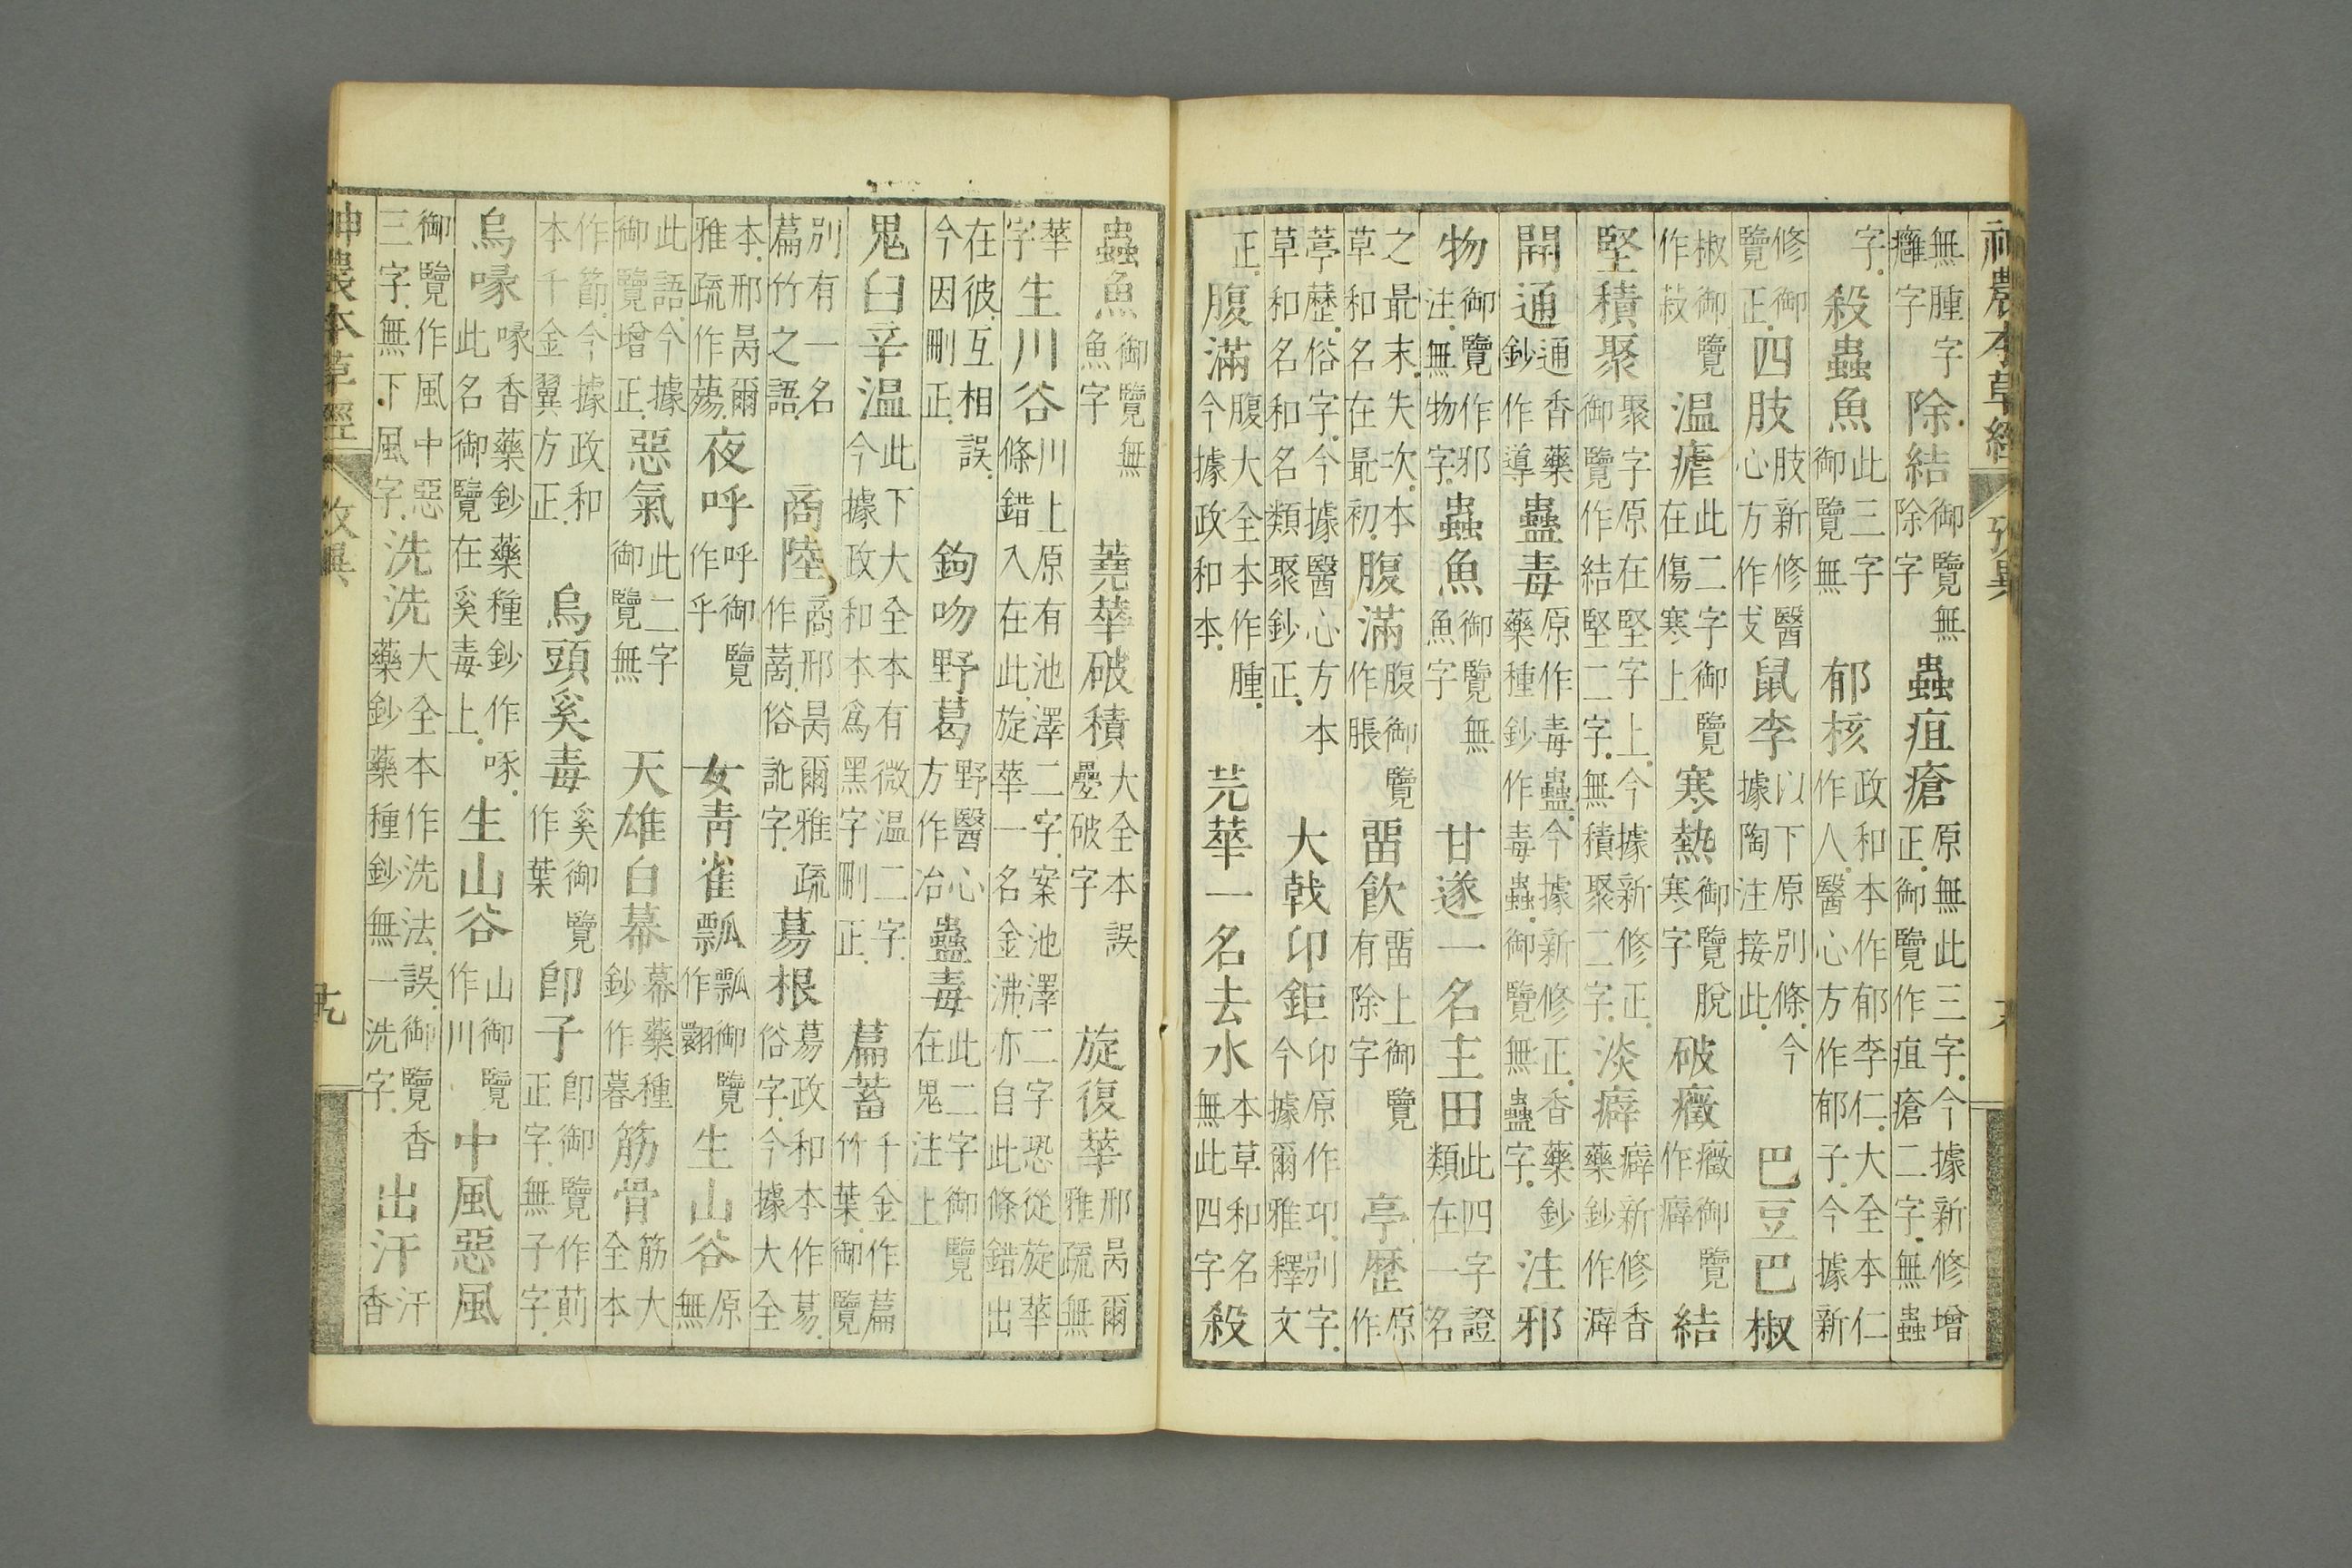 神農本草經 攷異
無腫字癰字除結御覽無除字蟲疽瘡原無此三字.今據新修增正.御覽作疽瘡二字.無蟲
字.殺蟲魚此三字御覽無郁核政和本作郁李仁.大全本仁作人.醫心方作郁子.今據新
修御覽正.四肢肢新修醫心方作支鼠李以下原別條.今據陶注接此.巴豆巴椒
椒御覽作菽温瘧此二字御覽在傷寒上寒熱御覽脫寒字破癥癥御覽作癖結
堅積聚聚字原在堅字上.今據新修正.御覽作結堅二字.無積聚二字.淡癖癖新修香藥鈔作澼
開通通香藥鈔作導蠱毒原作毒蠱.今據新修正.香藥鈔藥種鈔作毒蟲.御覽無蠱字.注邪
物御覽作邪注.無物字.蟲魚御覽無魚字甘遂一名主田此四字證類在一名
之最末.失次.本草和名在最初.腹滿腹御覽作脹畱飲畱上御覽有除字亭歷原作
葶藶.俗字.今據醫心方本草和名和名類聚鈔正.大戟卬鉅卬原作卭.別字.今據爾雅釋文
正.腹滿腹大全本作腫.今據政和本.芫華一名去水本草和名無此四字殺
蟲魚御覽無魚字蕘華破積大全本誤疊破字旋復華邢昺爾雅疏無
華字生川谷川上原有池澤二字.案池澤二字恐從旋華條錯入在此.旋華一名金沸亦自此條錯出
在彼.互相誤.今因刪正.鉤吻野葛野醫心方作冶蠱毒此二字御覽在鬼注上
鬼臼辛温此下大全本有微温二字.今據政和本爲黑字刪正.萹蓄千金作萹竹葉.御覽
別有一名萹竹之語.商陸商邢昺爾雅疏作蔏.俗訛字.根政和本作俗字.今據大全
本.邢昺爾雅疏作蕩.夜呼呼御覽作乎女青雀瓢瓢御覽作翾生山谷原無
此語.今據御覽增正.惡氣此二字御覽無天雄白幕幕藥種鈔作暮筋骨筋大全本
作節.今據政和本千金翼方正.烏頭奚毒奚御覽作葉卽子卽御覽作萴正字.無子字.
烏喙喙香藥鈔藥種鈔作啄.此名御覽在奚毒上.生山谷山御覽作川中風惡風
御覽作風中惡三字.無下風字.洗洗大全本作洗法.誤.御覽香藥鈔藥種鈔無一洗字.出汗汗香
神農本草經 攷異 十九